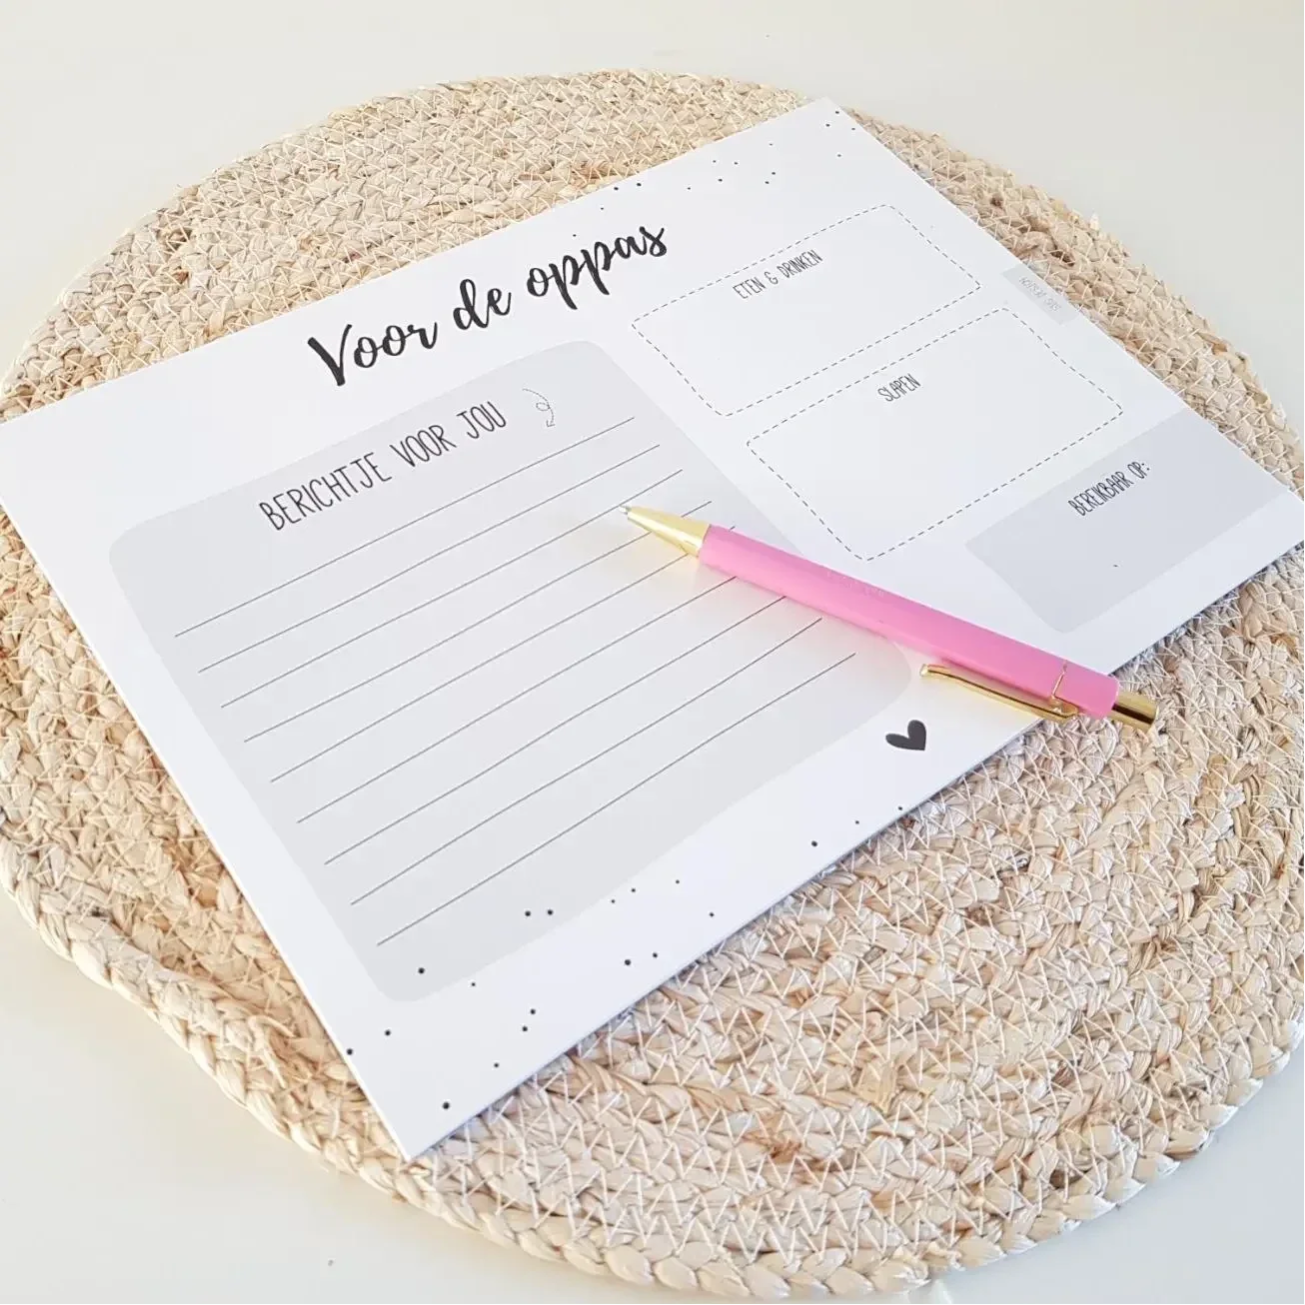 Voor de oppas
BERICHTJE VOOR JOU
ETEN & DRINKEN
SLAPEN
BEREIKBAAR OP: